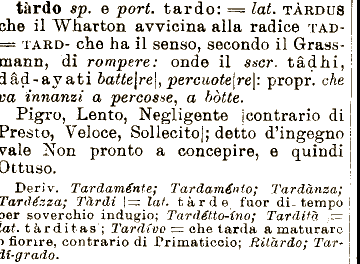 tàrdo sp. e port. tardo: = lat. TÀRDUS
che il Wharton avvicina alla radice TAD-
= TARD- che ha il senso, secondo il Grass-
mann, di rompere: onde il sscr. tâḍhi,
ḍâḍ-ayati batte[re], percuote[re]: propr. che
va innanzi a percosse, a bòtte.
Pigro, Lento, Negligente [contrario di
Presto, Veloce, Sollecito]; detto d'ingegno
vale Non pronto a concepire, e quindi
Ottuso.
Deriv. Tardaménte; Tardaménto; Tardànza;
Tardézza; Tàrdi [= lat. tàrde fuor di tempo
per soverchio indugio; Tardétto-ino; Tardità =
lat. tàrditas; Tardívo = che tarda a maturare
o fiorire, contrario di Primaticcio; Ritàrdo; Tar-
dí-grado.